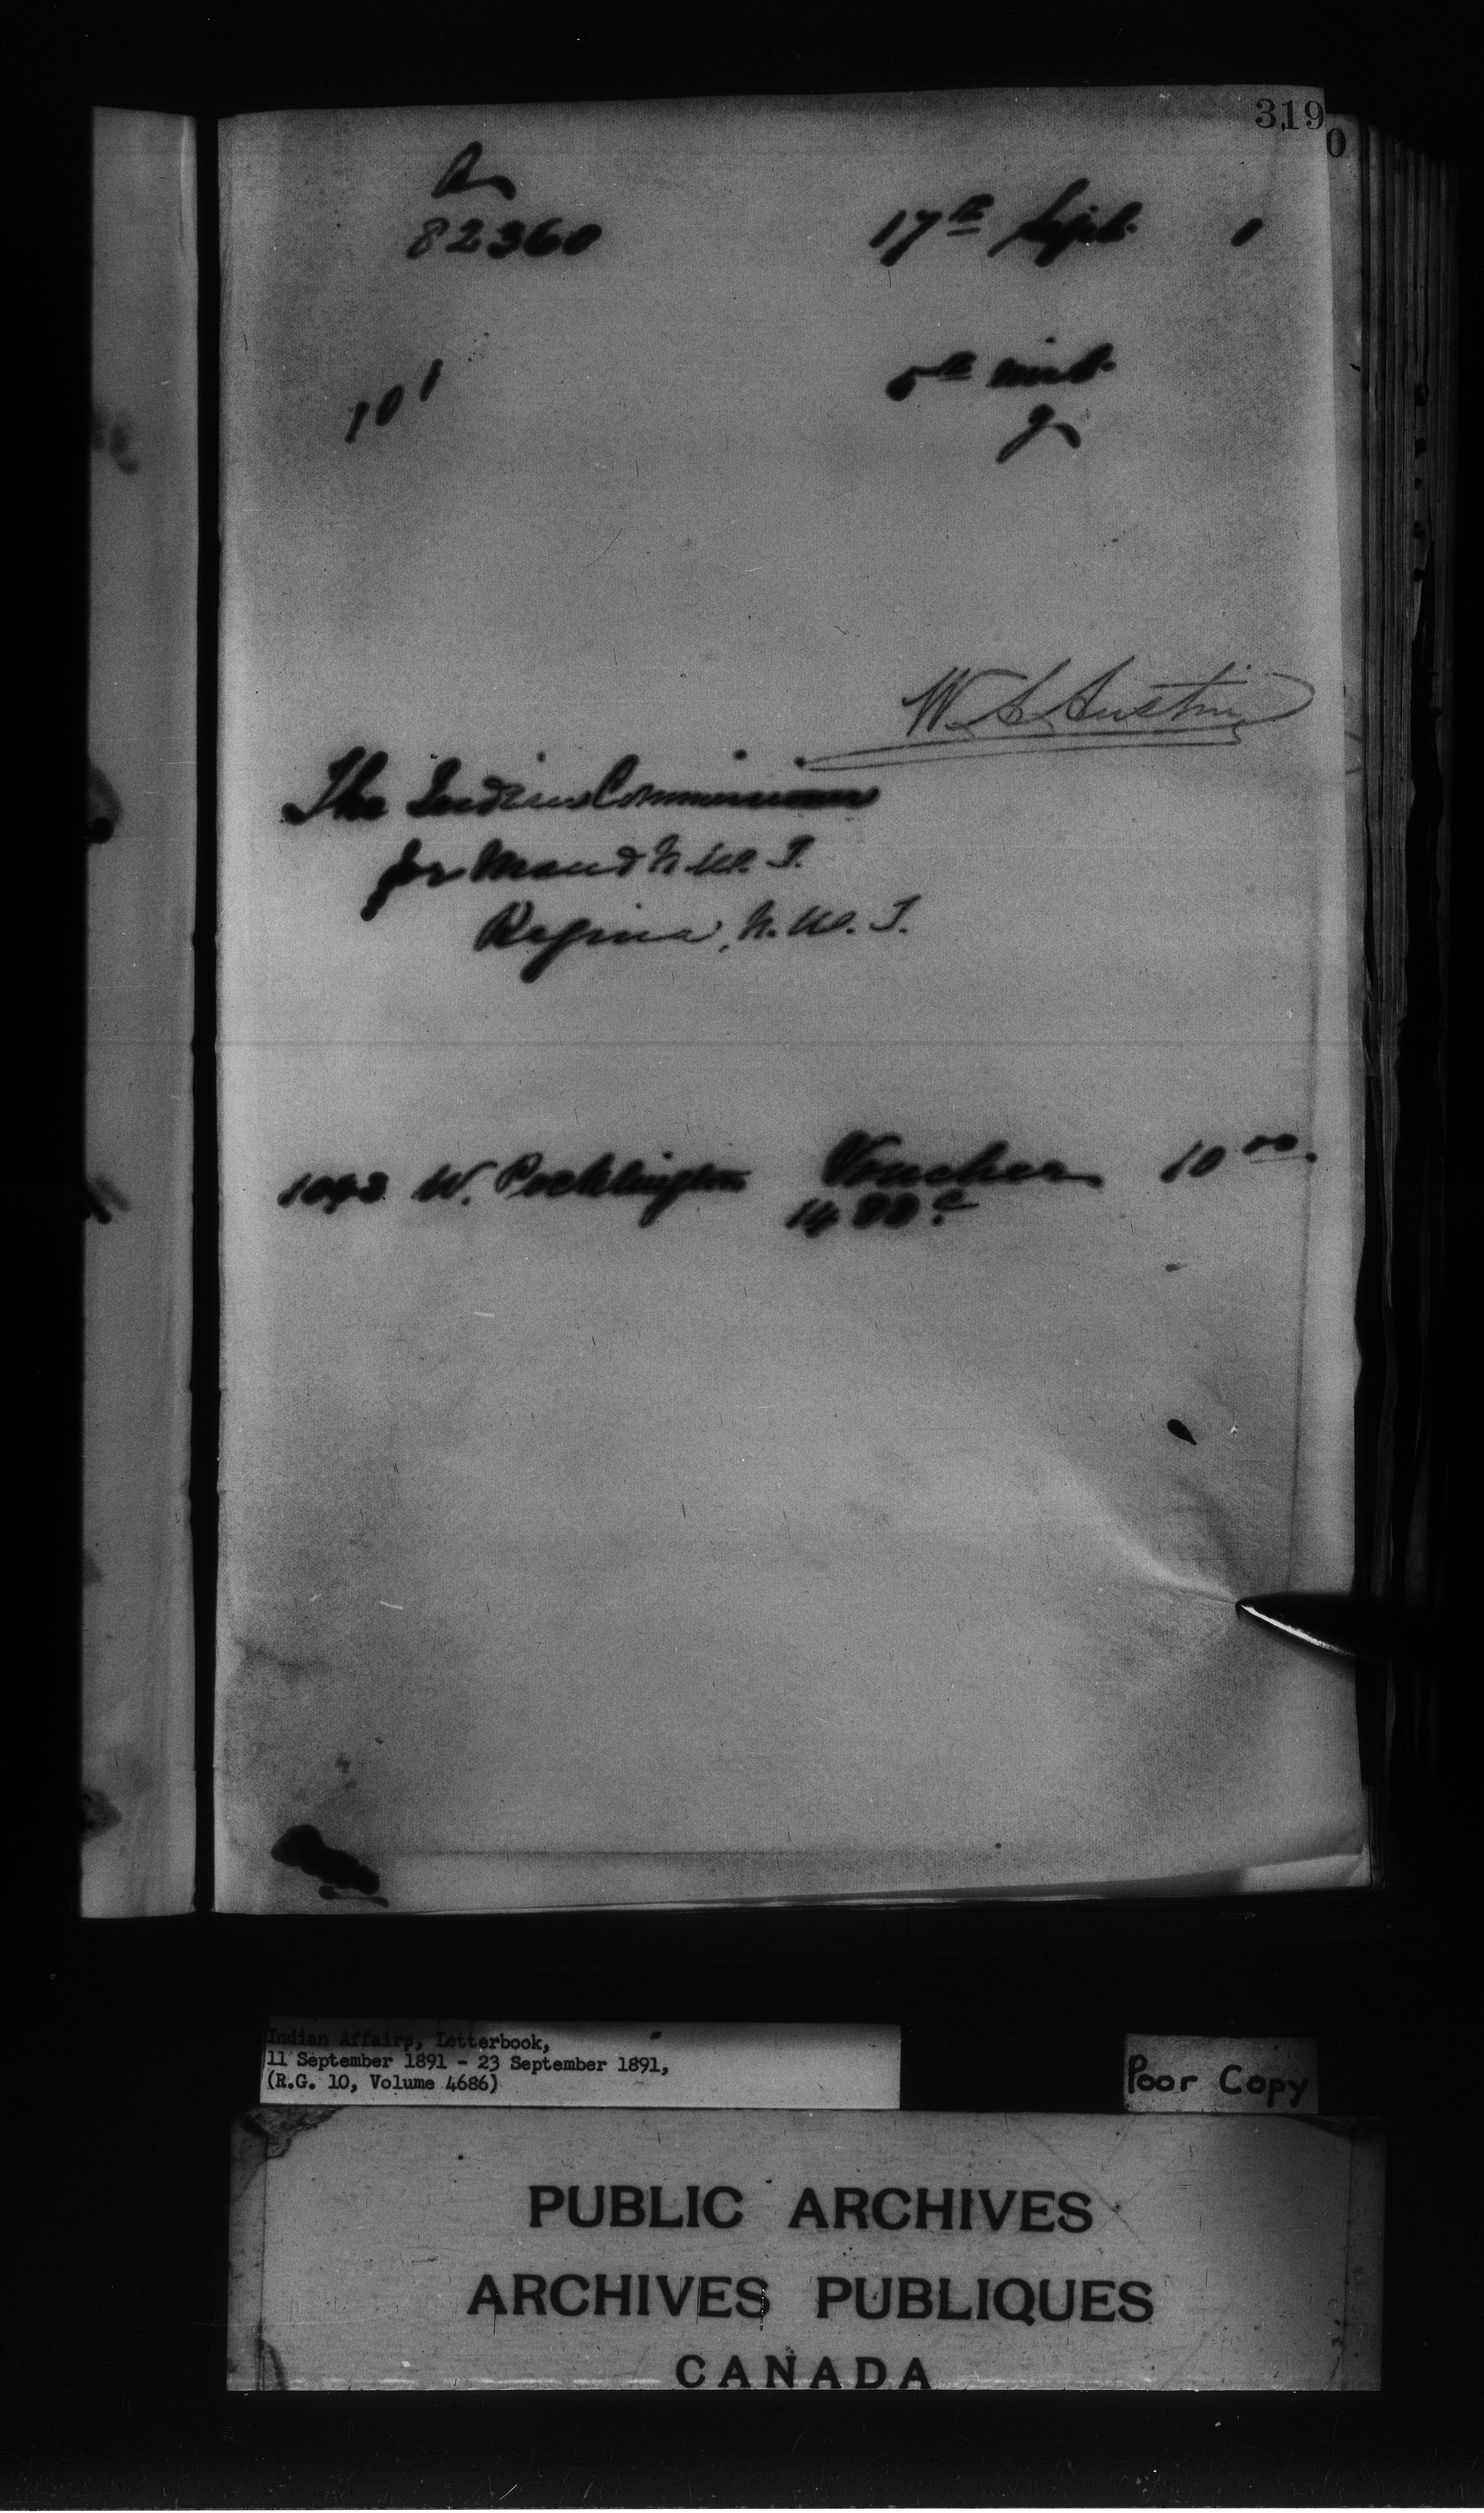 319
0
82360
17th Sept. 1
101
5th inst.
W. A. Austin
The Indian Commissioner
for Man & N. W. T.
Regina, N. W. T.
1093 W. Pocklington Voucher 10 00.
Indian Affairs, Letterbook,
11 September 1891 - 23 September 1891,
(R.G. 10, Volume 4686)
Poor Copy
PUBLIC ARCHIVES
ARCHIVES PUBLIQUES
CANADA